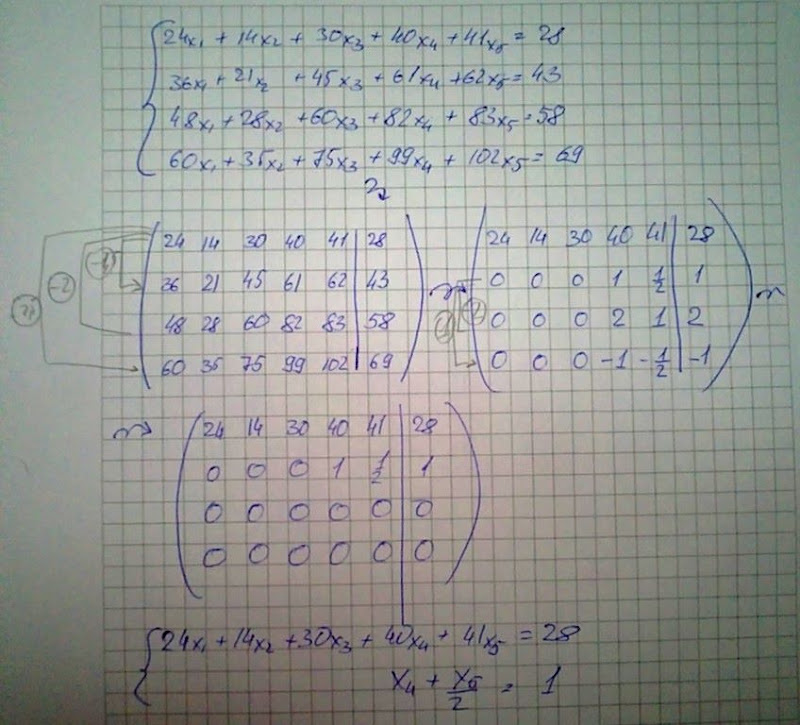 24x₁ + 14x₂ + 30x₃ + 40x₄ + 41x₅ = 28
36x₁ + 21x₂ + 45x₃ + 61x₄ + 62x₅ = 43
48x₁ + 28x₂ + 60x₃ + 82x₄ + 83x₅ = 58
60x₁ + 35x₂ + 75x₃ + 99x₄ + 102x₅ = 69
24 14 30 40 41 | 28
36 21 45 61 62 | 43
48 28 60 82 83 | 58
60 35 75 99 102 | 69
-2
24 14 30 40 41 | 28
0 0 0 1 1/2 | 1
0 0 0 2 1 | 2
0 0 0 -1 -1/2 | -1
24 14 30 40 41 | 28
0 0 0 1 1/2 | 1
0 0 0 0 0 | 0
0 0 0 0 0 | 0
24x₁ + 14x₂ + 30x₃ + 40x₄ + 41x₅ = 28
x₄ + x₅/2 = 1